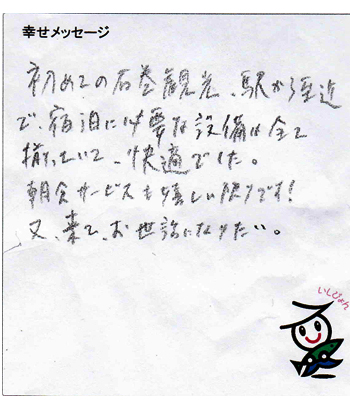 幸せメッセージ
初めての石巻観光、駅から至近
で、宿泊に必要な設備は全て
揃っていて、快適でした。
朝食サービスも嬉しい限りです!
又、来て、お世話になりたい。
いしぴょん